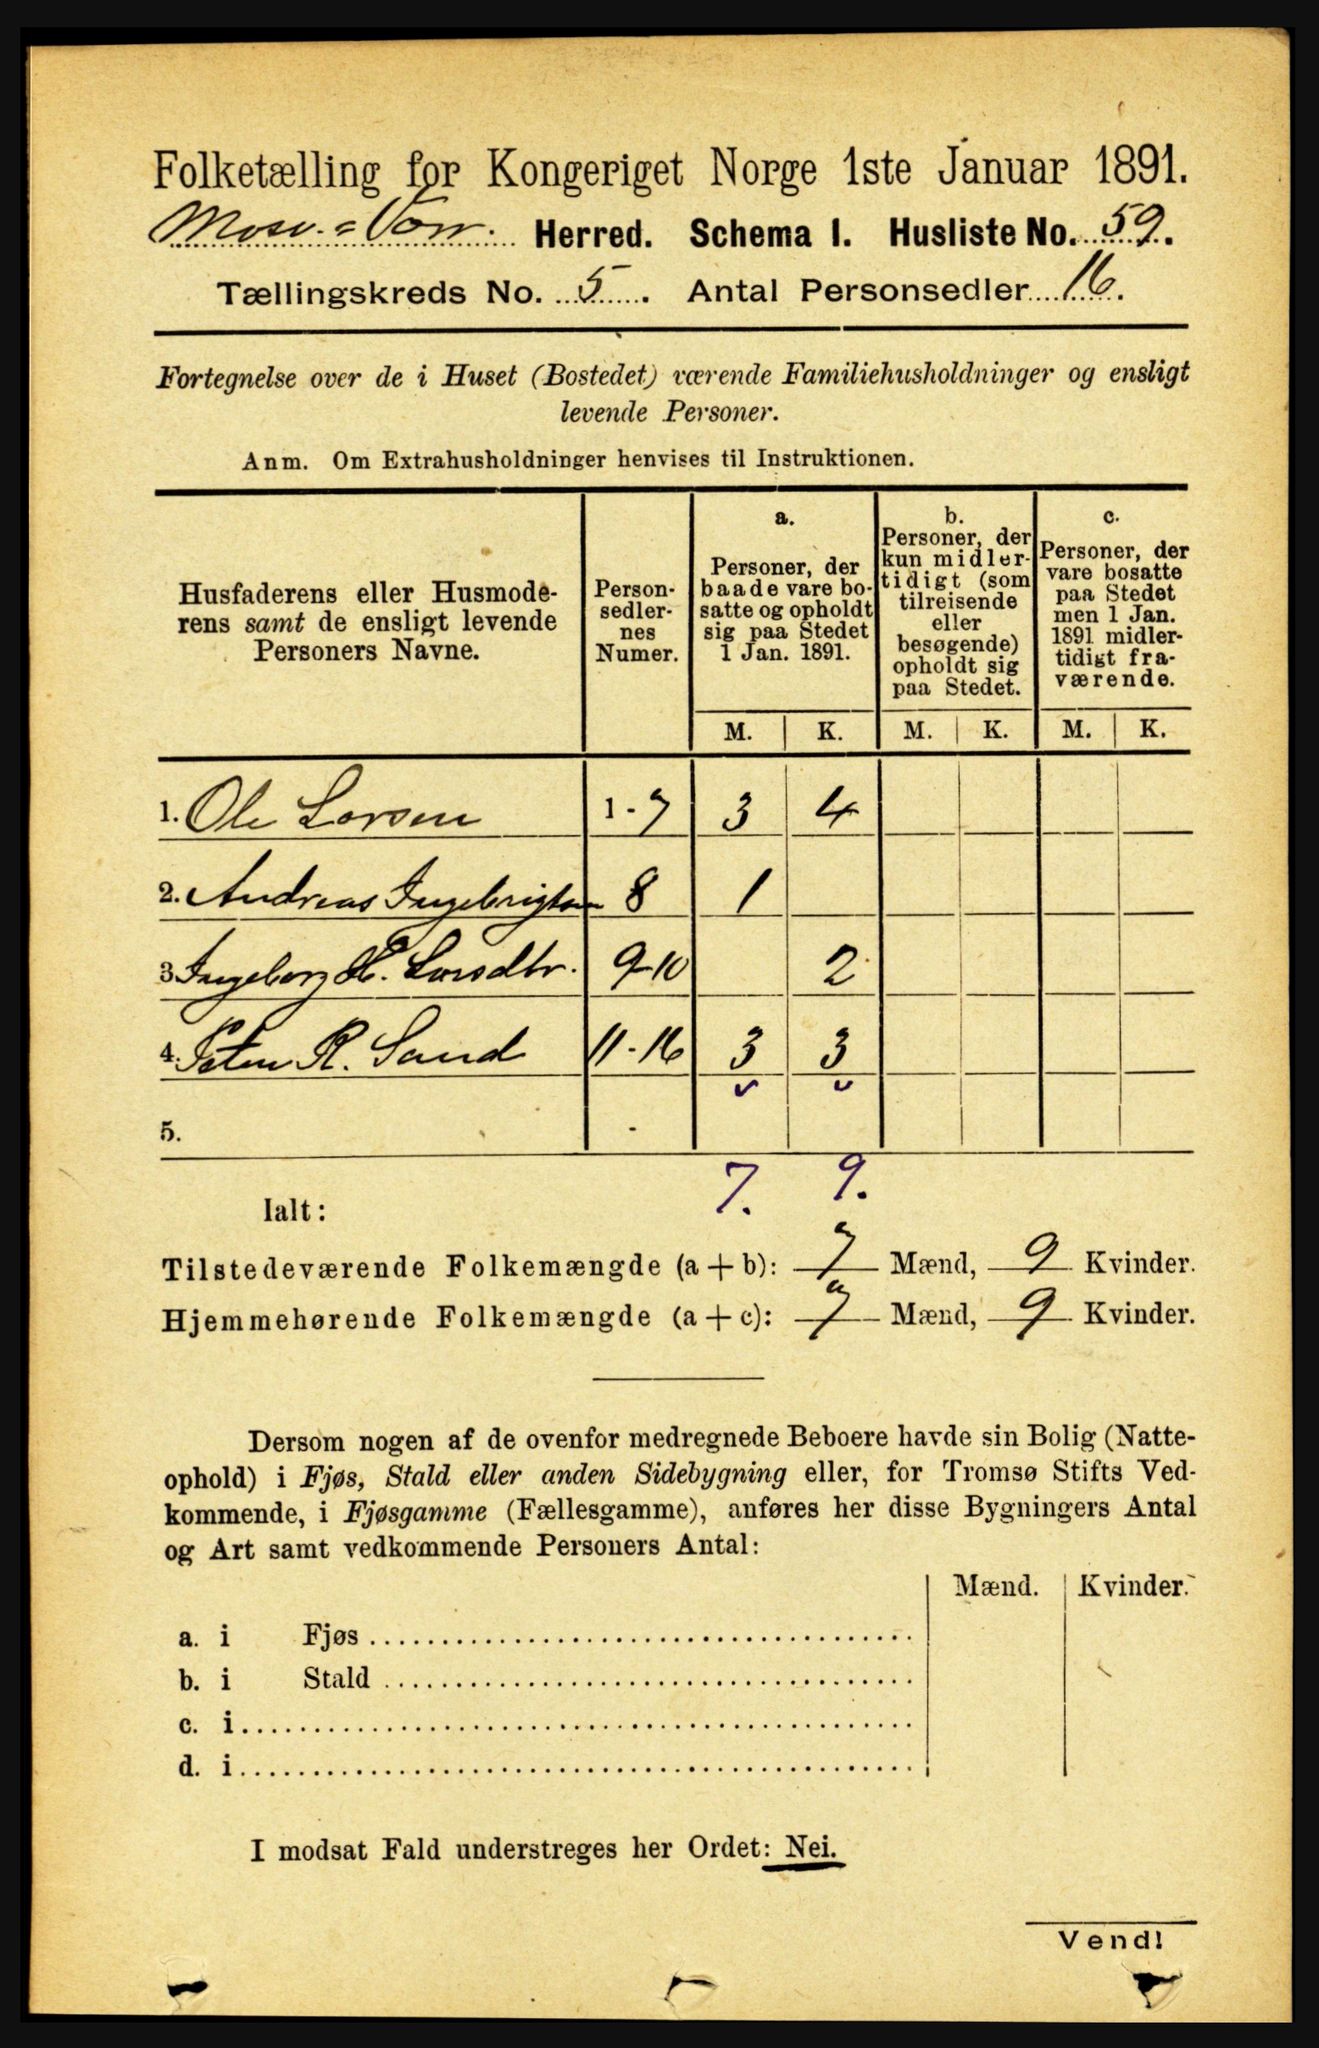 Folketælling for Kongeriget Norge 1ste Januar 1891.
Mosv.=Varr. Herred. Schema I. Husliste No. 59.
Tællingskreds No. 5. Antal Personsedler 16.
Fortegnelse over de i Huset (Bostedet) værende Familiehusholdninger og ensligt
levende Personer.
Anm. Om Extrahusholdninger henvises til Instruktionen.
Husfaderens eller Husmode-
rens samt de ensligt levende
Personers Navne.
Person-
sedler-
nes
Numer.
a.
Personer, der
baade vare bo-
satte og opholdt
sig paa Stedet
1 Jan. 1891.
b.
Personer, der
kun midler-
tidigt (som
tilreisende
eller
besøgende)
opholdt sig
paa Stedet.
c.
Personer, der
vare bosatte
paa Stedet
men 1 Jan.
1891 midler-
tidigt fra-
værende.
M. K. M. K. M. K.
1. Ole Larsen 1-7 3 4
2. Andreas Ingebrigtsen 8 1
3. Ingeborg H. Larsdtr. 9-10 2
4. Peter R. Sand 11-16 3 3
5. -
7. 9.
Ialt:
Tilstedeværende Folkemængde (a + b): 7 Mænd, 9 Kvinder.
Hjemmehørende Folkemængde (a + c): 7 Mænd, 9 Kvinder.
Dersom nogen af de ovenfor medregnede Beboere havde sin Bolig (Natte-
ophold) i Fjøs, Stald eller anden Sidebygning eller, for Tromsø Stifts Ved-
kommende, i Fjøsgamme (Fællesgamme), anføres her disse Bygningers Antal
og Art samt vedkommende Personers Antal:
Mænd. Kvinder.
a. i Fjøs
b. i Stald
c. i
d. i
I modsat Fald understreges her Ordet: Nei.
Vend!